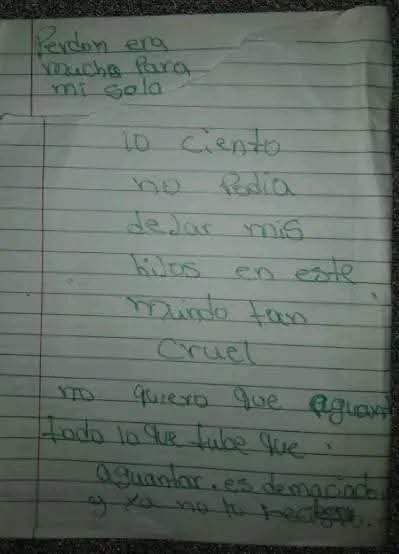 Perdon era
mucho Para
mi sola
lo ciento
no Podia
dejar mis
hijos en este
mundo tan
cruel
no quiero que aguant
todo lo que tube que
aguantar. es demaciado
y ya no